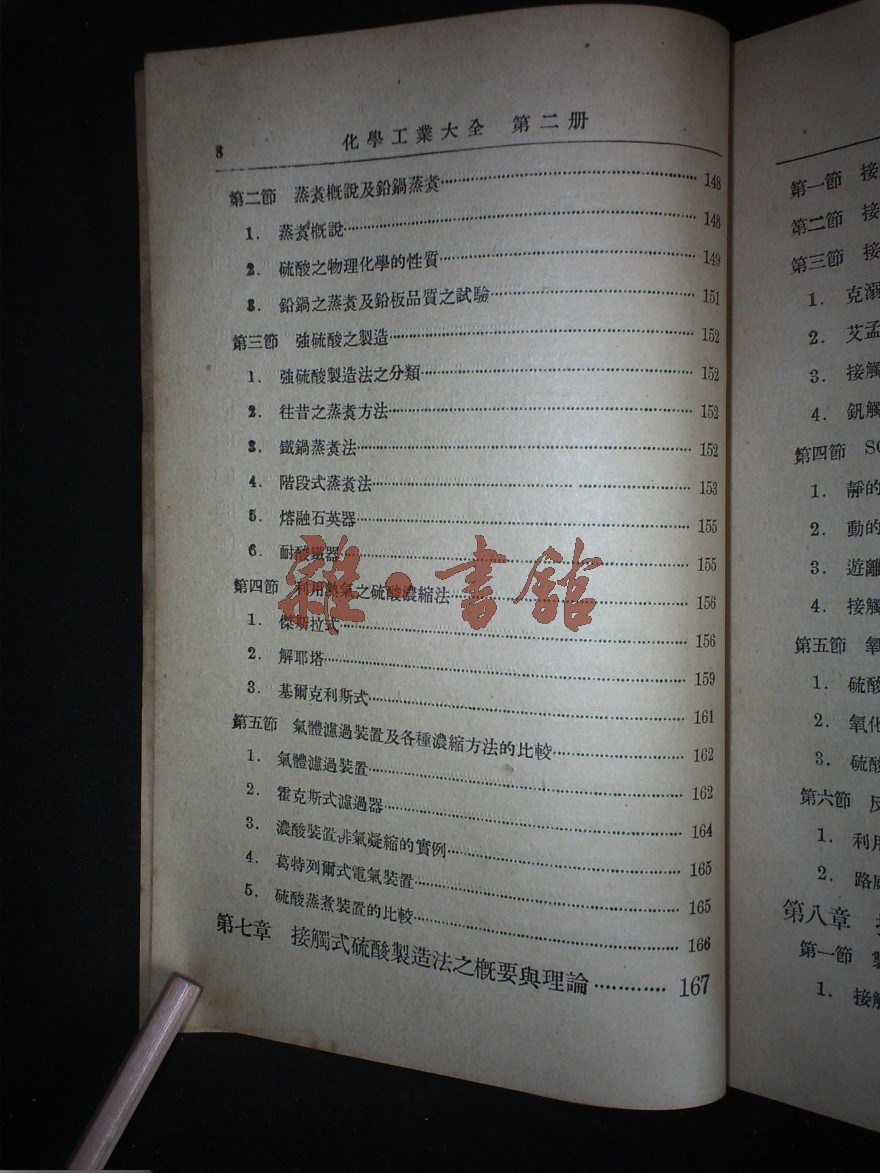 8 化學工業大全 第二册
第二節 蒸煑概說及鉛鍋蒸煑 148
1. 蒸煑概說 148
2. 硫酸之物理化學的性質 149
3. 鉛鍋之蒸煑及鉛板品質之試驗 151
第三節 強硫酸之製造 152
1. 強硫酸製造法之分類 152
2. 往昔之蒸煑方法 152
3. 鐵鍋蒸煑法 152
4. 階段式蒸煑法 153
5. 熔融石英器 155
6. 耐酸鐵器 155
第四節 利用熱氣之硫酸濃縮法 156
1. 傑斯拉式 156
2. 解耶塔 159
3. 基爾克利斯式 161
第五節 氣體濾過裝置及各種濃縮方法的比較 162
1. 氣體濾過裝置 162
2. 霍克斯式濾過器 164
3. 濃酸裝置排氣凝縮的實例 165
4. 葛特列爾式電氣裝置 165
5. 硫酸蒸煮裝置的比較 166
第七章 接觸式硫酸製造法之概要與理論 167
雜·書館
第一節 接
第二節 接
第三節 接
1. 克溺
2. 艾孟
3. 接觸
4. 釩觸
第四節
1. 靜的
2. 動的
3. 遊離
4. 接觸
第五節 氧
1. 硫酸
2. 氧化
3. 硫酸
第六節 反
1. 利用
2. 路
第八章
第一節 製
1. 接觸